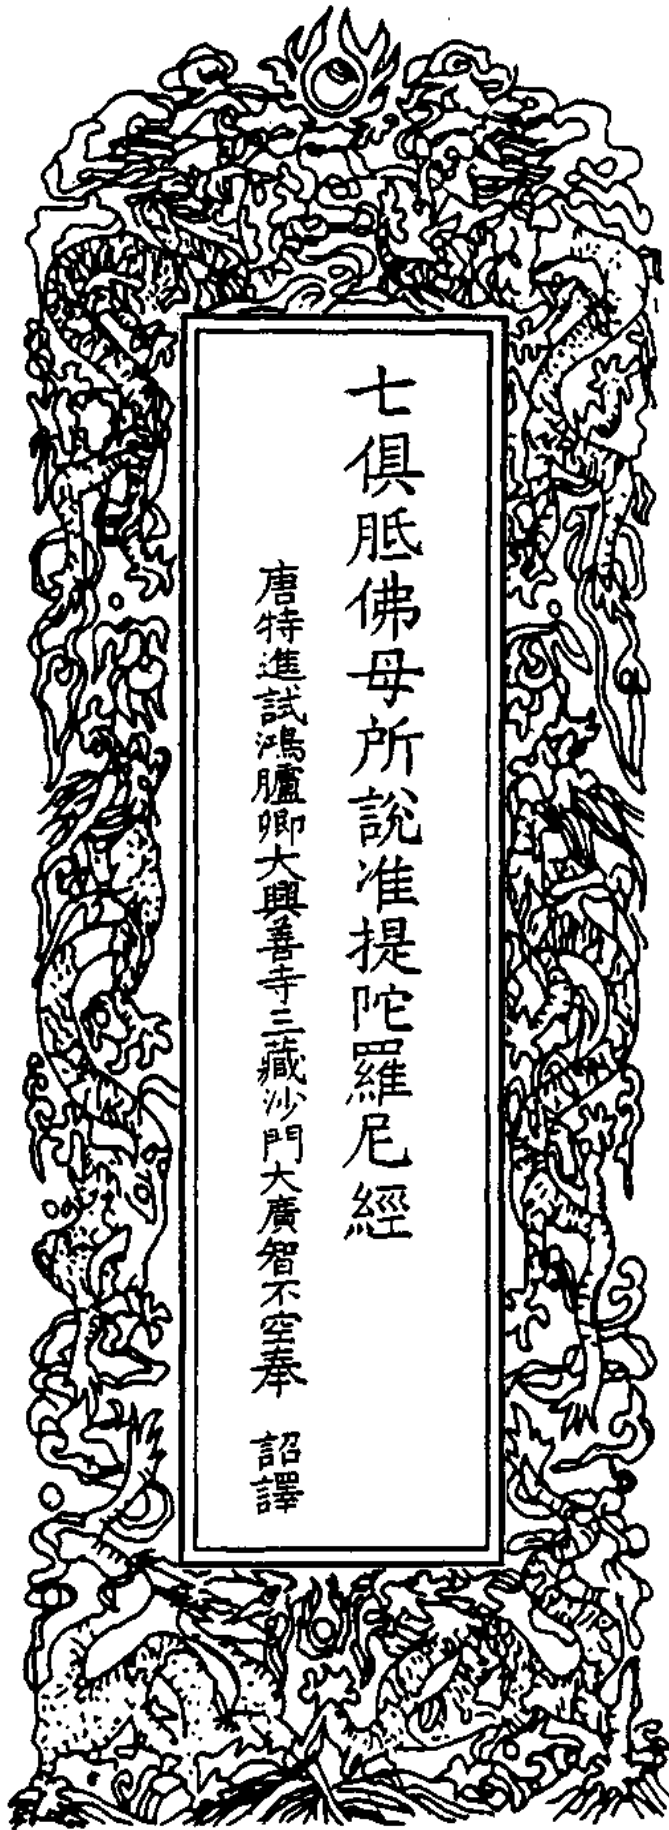 七俱胝佛母所說准提陀羅尼經
唐特進試鴻臚卿大興善寺三藏沙門大廣智不空奉 詔譯